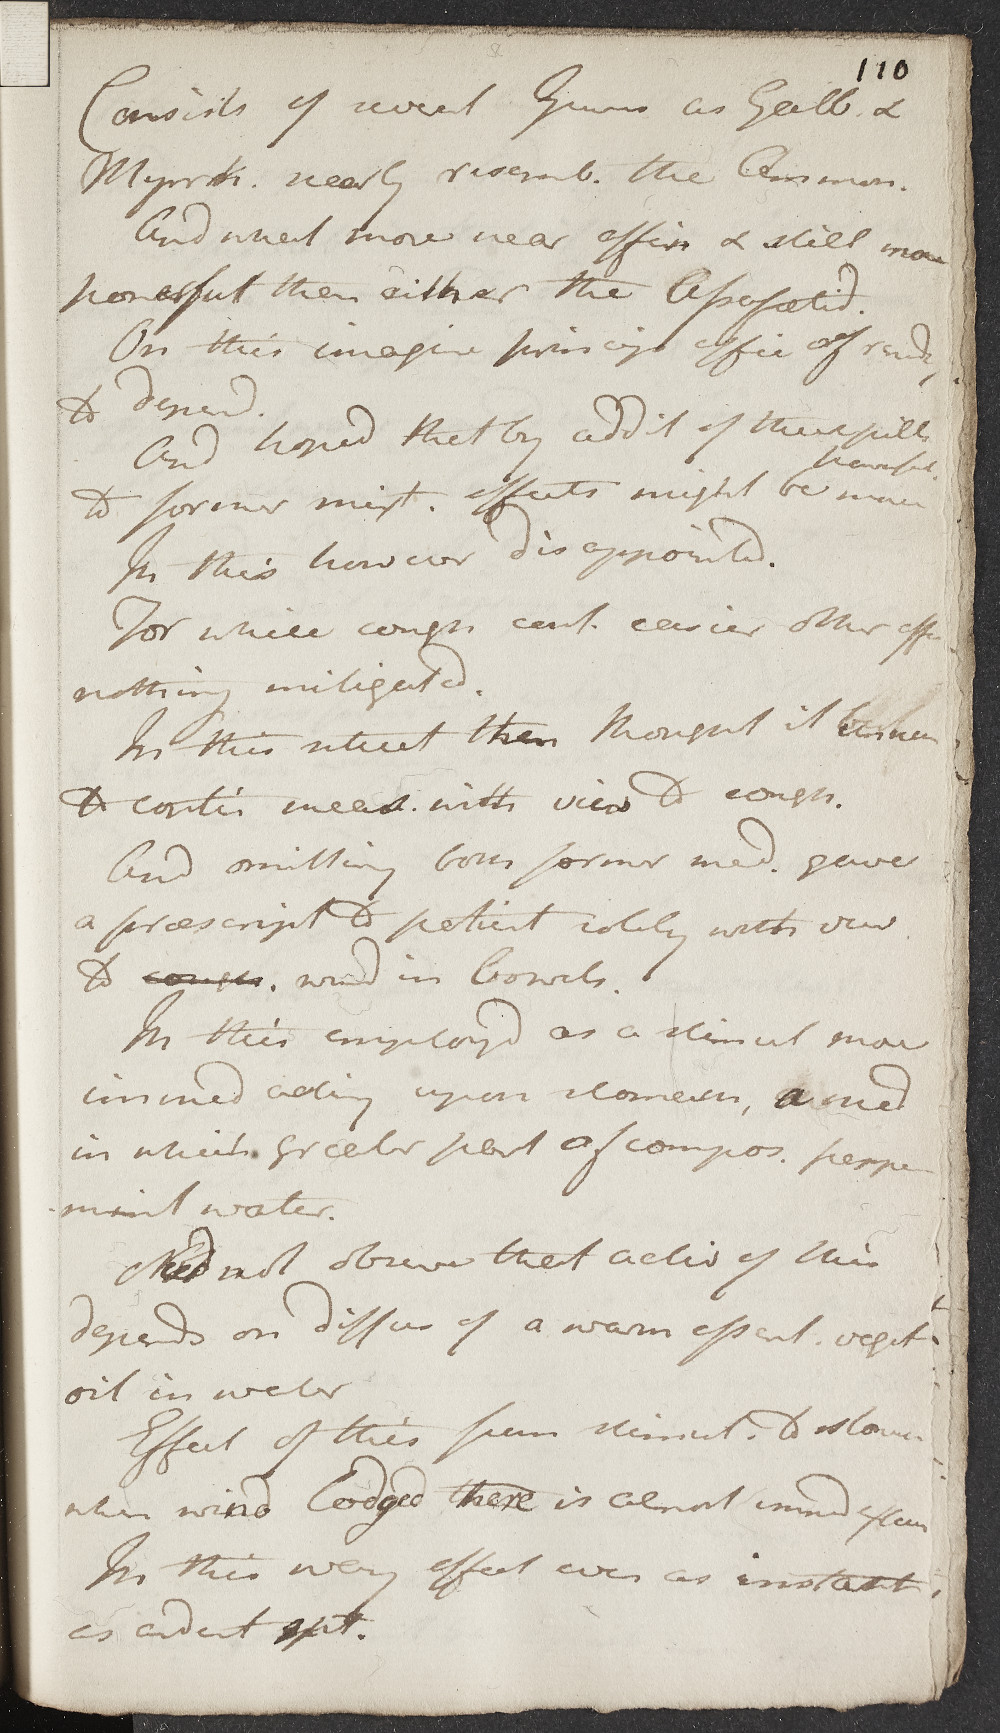 110
Consists of several Gums as Galb. &
Myrrh. nearly resemb. the Common.
And what more near affin & still more
powerful then either the Assafœtid.
On this imagine princip effic of remd
to depend.
And hoped that by addit of these pills
powerful.
to former mixt. effects might be more
In this however disappointed.
For while cough cont. easier other affe
nothing mitigated.
In this situat then thought it
to contin med. with view to cough.
And omitting both former med. gave
a præscript to patient solely with view
to cough. wind in bowels.
In this employ'd as a stimul more
immed acting upon stomach, a med
in which greater part of compos. pepper
mint water.
Need not observe that actio of this
depends on diffus of a warm essent. veget
oil in water
Effect of this from stimul. to stomac
when wind lodged there is almost immed
In this way effect even as instant,
as ardent spt.